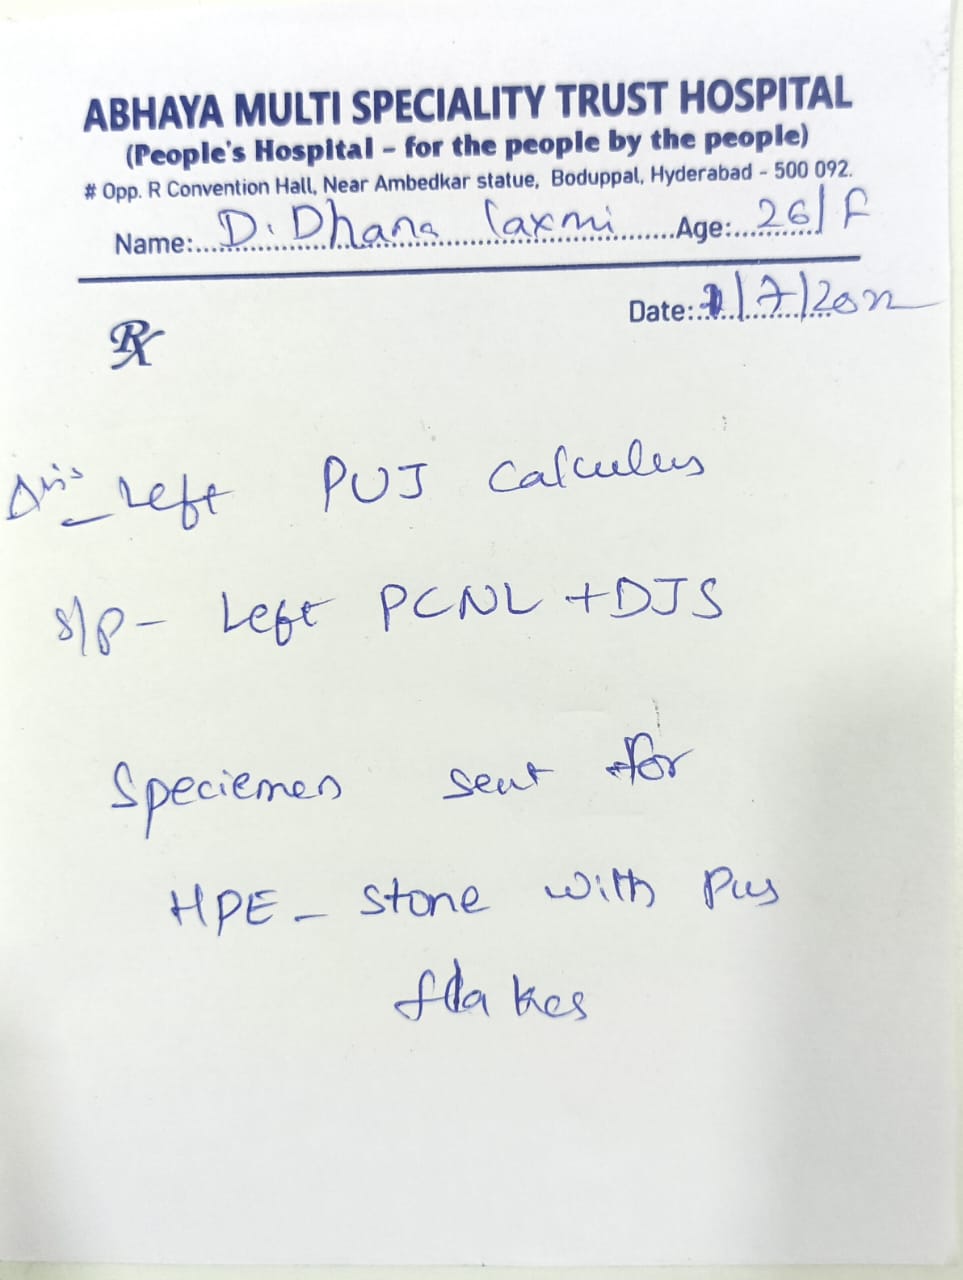 ABHAYA MULTI SPECIALITY TRUST HOSPITAL
(People's Hospital - for the people by the people)
# Opp. R Convention Hall, Near Ambedkar statue, Boduppal, Hyderabad - 500 092.
Name:....D. Dhana laxmi....Age:....26/F
Date:..../7/2022
Rx
Left PUJ calculus
S/P - Left PCNL + DJS
Speciemen sent for
HPE - stone with pus
flakes